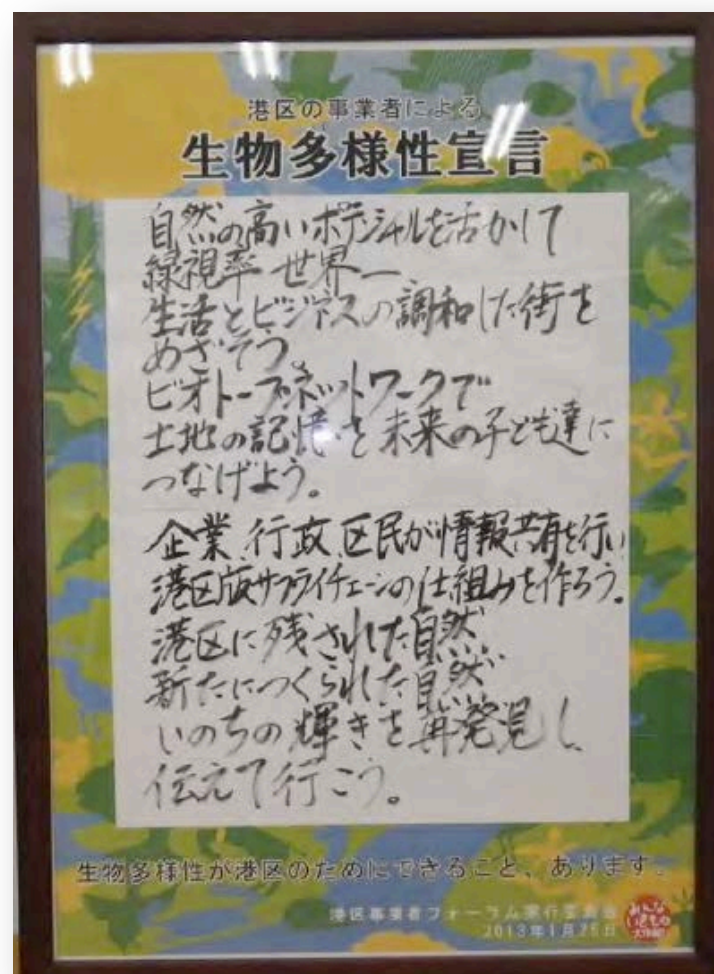 港区の事業者による
生物多様性宣言
自然の高いポテンシャルを活かして
緑視率 世界一
生活とビジネスの調和した街を
めざそう。
ビオトープネットワークで
土地の記憶を未来の子ども達に
つなげよう。
企業、行政、区民が情報共有を行い
港区版サプライチェーンの仕組みを作ろう。
港区に残された自然
新たにつくられた自然
いのちの輝きを再発見し、
伝えて行こう。
生物多様性が港区のためにできること、あります。
港区事業者フォーラム実行委員会
2013年1月25日
みんなと
いきもの
大作戦!